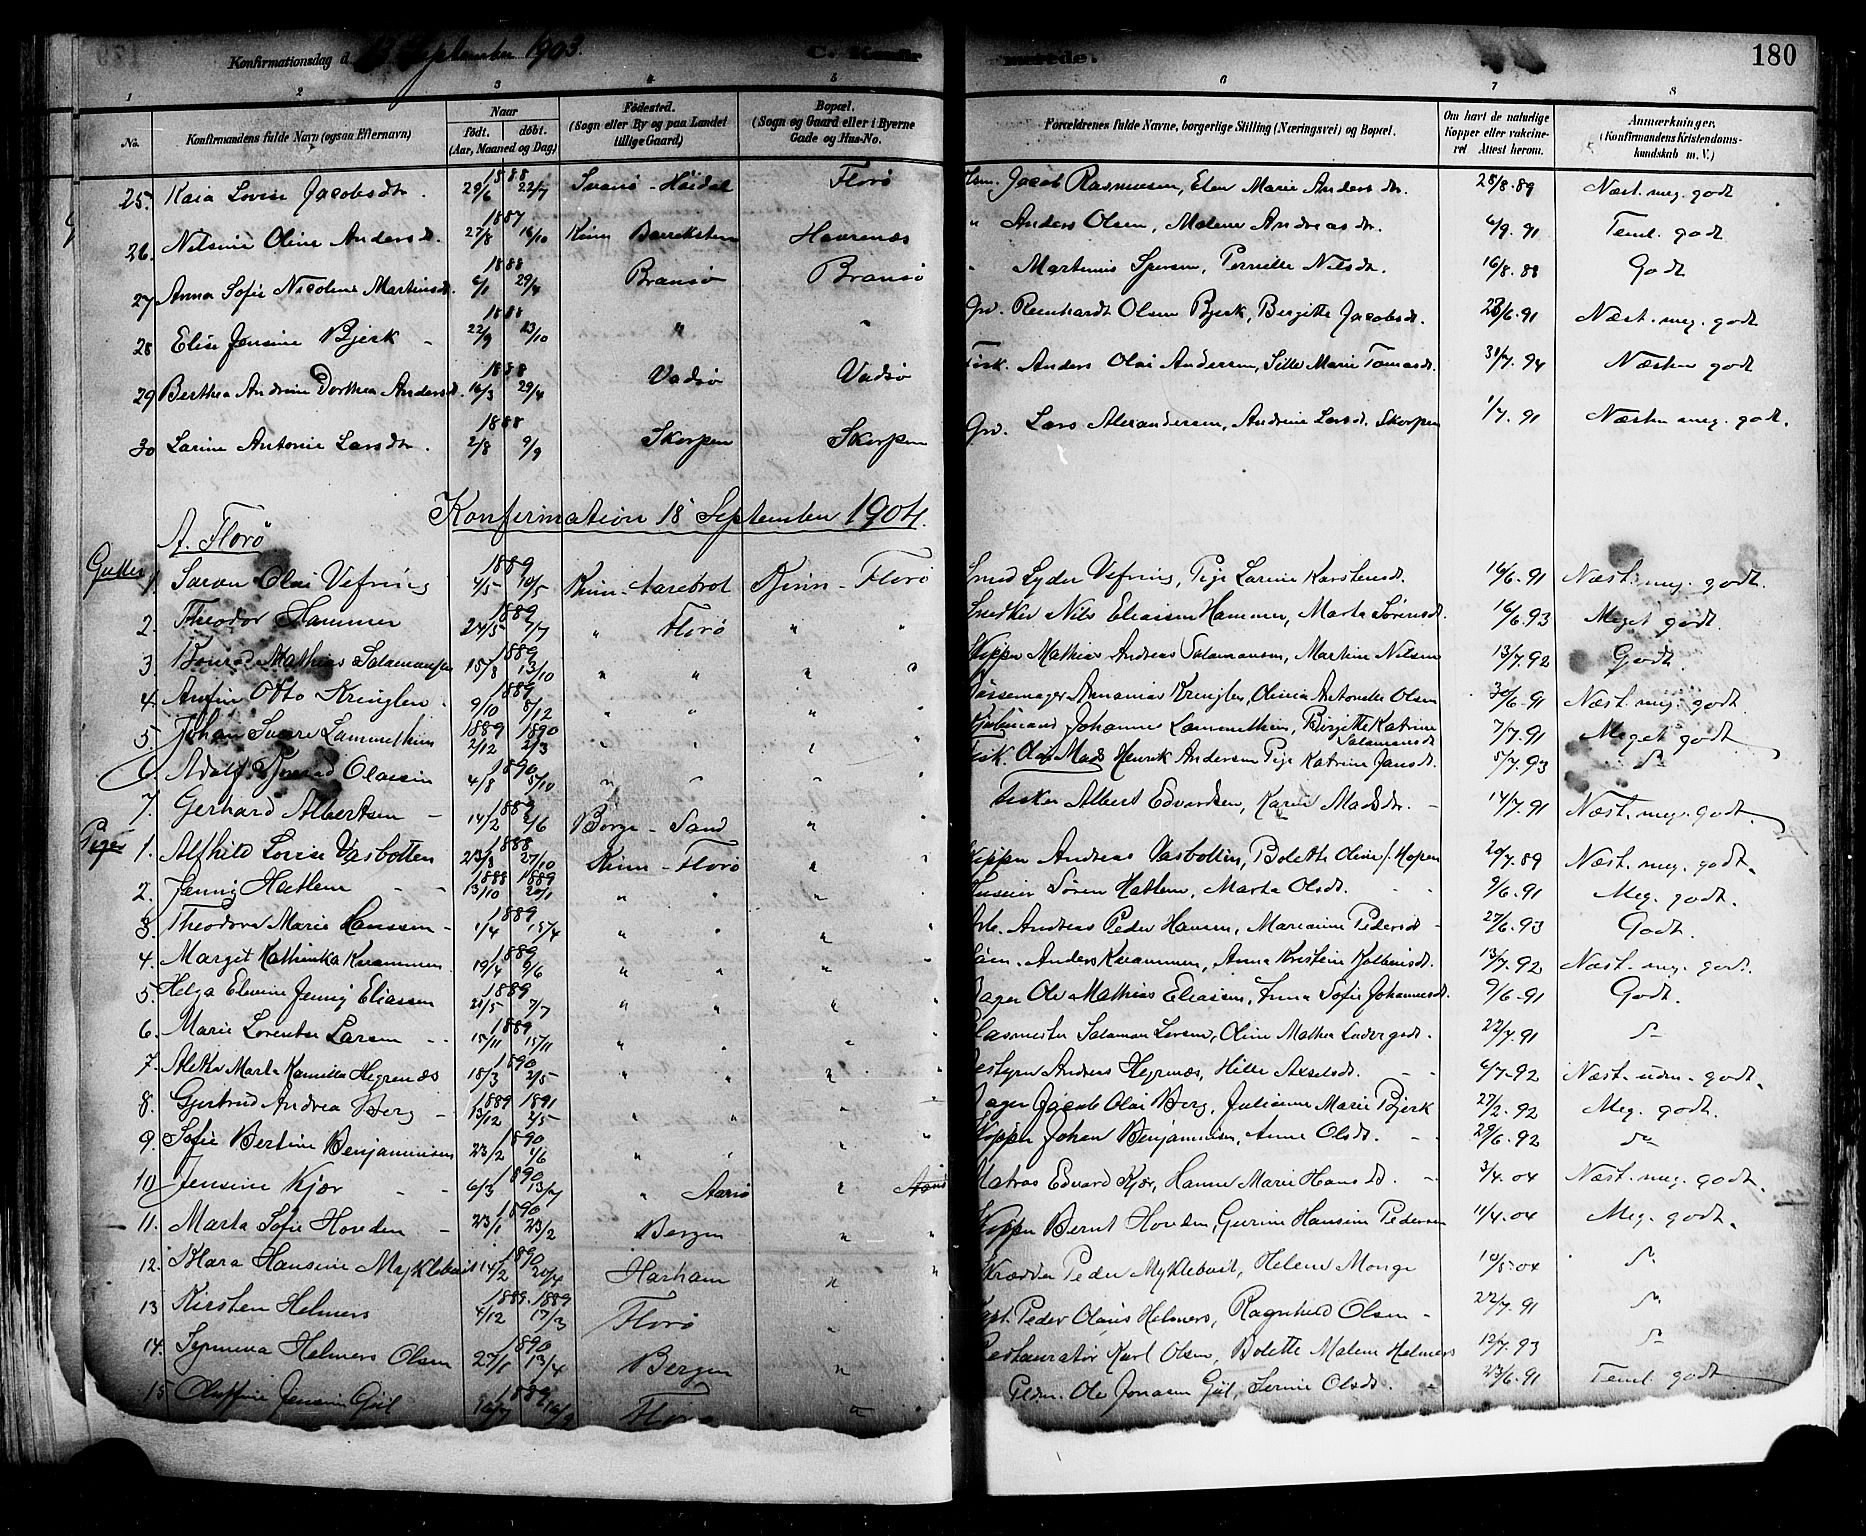 Konfirmationsdag d. 13 September 1903. C. Konfir-
merede. 180
1 2 3 4 5 6 7 8
No. Konfirmandens fulde Navn (ogsaa Efternavn) Naar født. døbt. (Aar, Maaned og Dag) Fødested. (Sogn eller By og paa Landet tillige Gaard) Bopæl. (Sogn og Gaard eller i Byerne Gade og Hus-No. Forældrenes fulde Navne, borgerlige Stilling (Næringsvei) og Bopæl. Om havt de naturlige Kopper eller vakcineret Attest herom. Anmærkninger, (Konfirmandens Kristendomskundskab m. V.)
25. Kaia Lovise Jacobsdt. 1888 29/6 22/7 Svanø - Høidal Florø Jacob Rasmussen, Elen Marie Andersdtr. 28/8.89 Næst. meg. godt
26. Nilsine Oline Andersd. 1887 27/8 16/10 Kinn Barreksten Havrenæs " Anders Olsen, Malene Andreasdtr. 6/9.91 Teml. godt
27 Anna Sofie Nicoline Martinsdt. 1888 6/1 29/4 Bransø Bransø " Martinus Spersen, Pernille Nilsdt. 16/8.88 Godt
28 Elise Jensine Bjerk - 1888 22/9 13/10 " " Gr. Reinhardt Olsen Bjerk, Birgitte Jacobsdt. 23/6.91 Næst. meg. godt
29 Berthea Andrine Dorthea Andersd. 1888 16/3 29/4 Vadsø Vadsø Fisk. Anders Olai Andersen, Sille Marie Tomasdt. 31/7.94 Næsten godt
30 Larine Antonie Larsdtr. 1888 2/8 9/9 Skorpen Skorpen Gr. Lars Alexandersen, Andrine Larsdt. Skorpen 1/7.91 Næsten meg. godt.
Konfirmation 18 September 1904.
A. Florø
Gutter 1. Søren Olai Vefring 1889 4/5 10/5 Kinn - Aarebrot Kinn - Florø Smed Lyder Vefring, Pige Larine Karstensdt. 16/6.91 Næst. meg. godt.
2. Theodor Hammer 1889 24/5 7/7 " Florø " " Snedker Nils Eliassen Hammer, Marta Sørensdt. 16/6.93 Meget godt.
3 Konrad Mathias Salamonsen 1889 15/8 13/10 " " " " Mathias Andreas Salamonsen, Martine Nilsen 13/7.92 Godt.
4. Anfin Otto Kringlen. 1889 9/10 8/12 " " " " Ananias Kringlen, Olivia Antonette Olsen 30/6.91 Næst. meg. godt.
5. Johan Sverre Lammetheim 1889 2/12 1890 2/3 " " " " Johannes Lammetheim, Birgitte Katrine Salamonsdt 7/7.91 Meget godt
6. Adolf Olassen 1890 4/8 5/10 " " " " Fisk. Ole Mads Henrik Andersen Pige Katrine Jansdt. 5/7.93 do
7. Gerhard Albertsen - 1889 14/2 2/6 Borge - Sand " " Fisker Albert Edvardsen, Karen Madsdtr. - 14/7.91 Næst. meg. godt.
Piger 1. Alfhild Lovise Vasbotten 1888 23/8 27/10 Kinn - Florø " " Andreas Vasbotten, Bolette Oline f. Hopen 20/7.89 Næst. meg. godt.
2. Jenny Hatlem - - 1888 13/10 1889 20/1 " " " Søren Hatlem, Marta Olsdt. 9/6.91 Meg. godt.
3. Theodora Marie Hanssen - 1889 1/4 15/4 " " " " Andreas Peder Hansen, Marianne Pedersd - 27/6.93 Godt.
4. Margit Kathinka Kvammen 1889 19/4 9/6 " " " Anders Kvammen, Anna Kristine Kolbeinsdt. 13/7.92 Næst. meg. godt.
5. Helga Elevine Jenny Eliassen 1889 21/5 7/7 " " " " Ole Mathias Eliassen, Anna Sofie Johannesdt. 9/6.91 Godt.
6. Marie Lorentse Larsen - - 1889 15/11 15/11 " " " " Glasmester Salamon Larsen, Oline Mathea Ludvigsdt. 22/7.91 do
7. Aletha Marta Kamilla Hegrenæs 1890 15/3 2/5 " " " Bestyrer Andreas Hegrenæs, Hille Axelsdt. - - 6/7.92 Næst. udm. godt.
8. Gjertrud Andrea Berg - 1889 13/12 1891 2/5 " " " " Bager Jacob Olai Berg, Julianne Marie Bjerk 27/2.92 Meg. godt.
9. Sofie Bertine Benjaminsen 1890 23/2 1/6 " " " " Johan Benjaminsen, Anne Olsdt. - - 29/6.92 do
10 Jensine Kjær - - 1890 6/3 13/7 " Aarø " Aarø Matros Edvard Kjær, Hanne Marie Hansdt. - 3/4.04 Næst. meg. godt.
11. Marta Sofie Hovden - 1890 23/1 23/2 Bergen " " Bernt Hovden, Gurine Hansine Pedersen 11/4.04 Meg. godt.
12. Klara Hansine Myklebust 1890 14/2 20/4 Harham " " Skrædder Peder Myklebust, Helene Monge 10/5.04 do
13 Kirsten Helmers 1889. 4/12 1889 17/3 Florø " Peder Olaus Helmers, Ragnhild Olsen - 22/7.91 do
14. Synneva Helmers Olsen 1890 27/1 13/4 Bergen " Restauratør Karl Olsen, Bolette Malene Helmers 12/7.93 do
15 Oluffine Jensine Gjil 1889 16/7 16/9 Florø " Ole Jonasen Gjil, Serine Olsdt. 23/6.91 Teml. godt